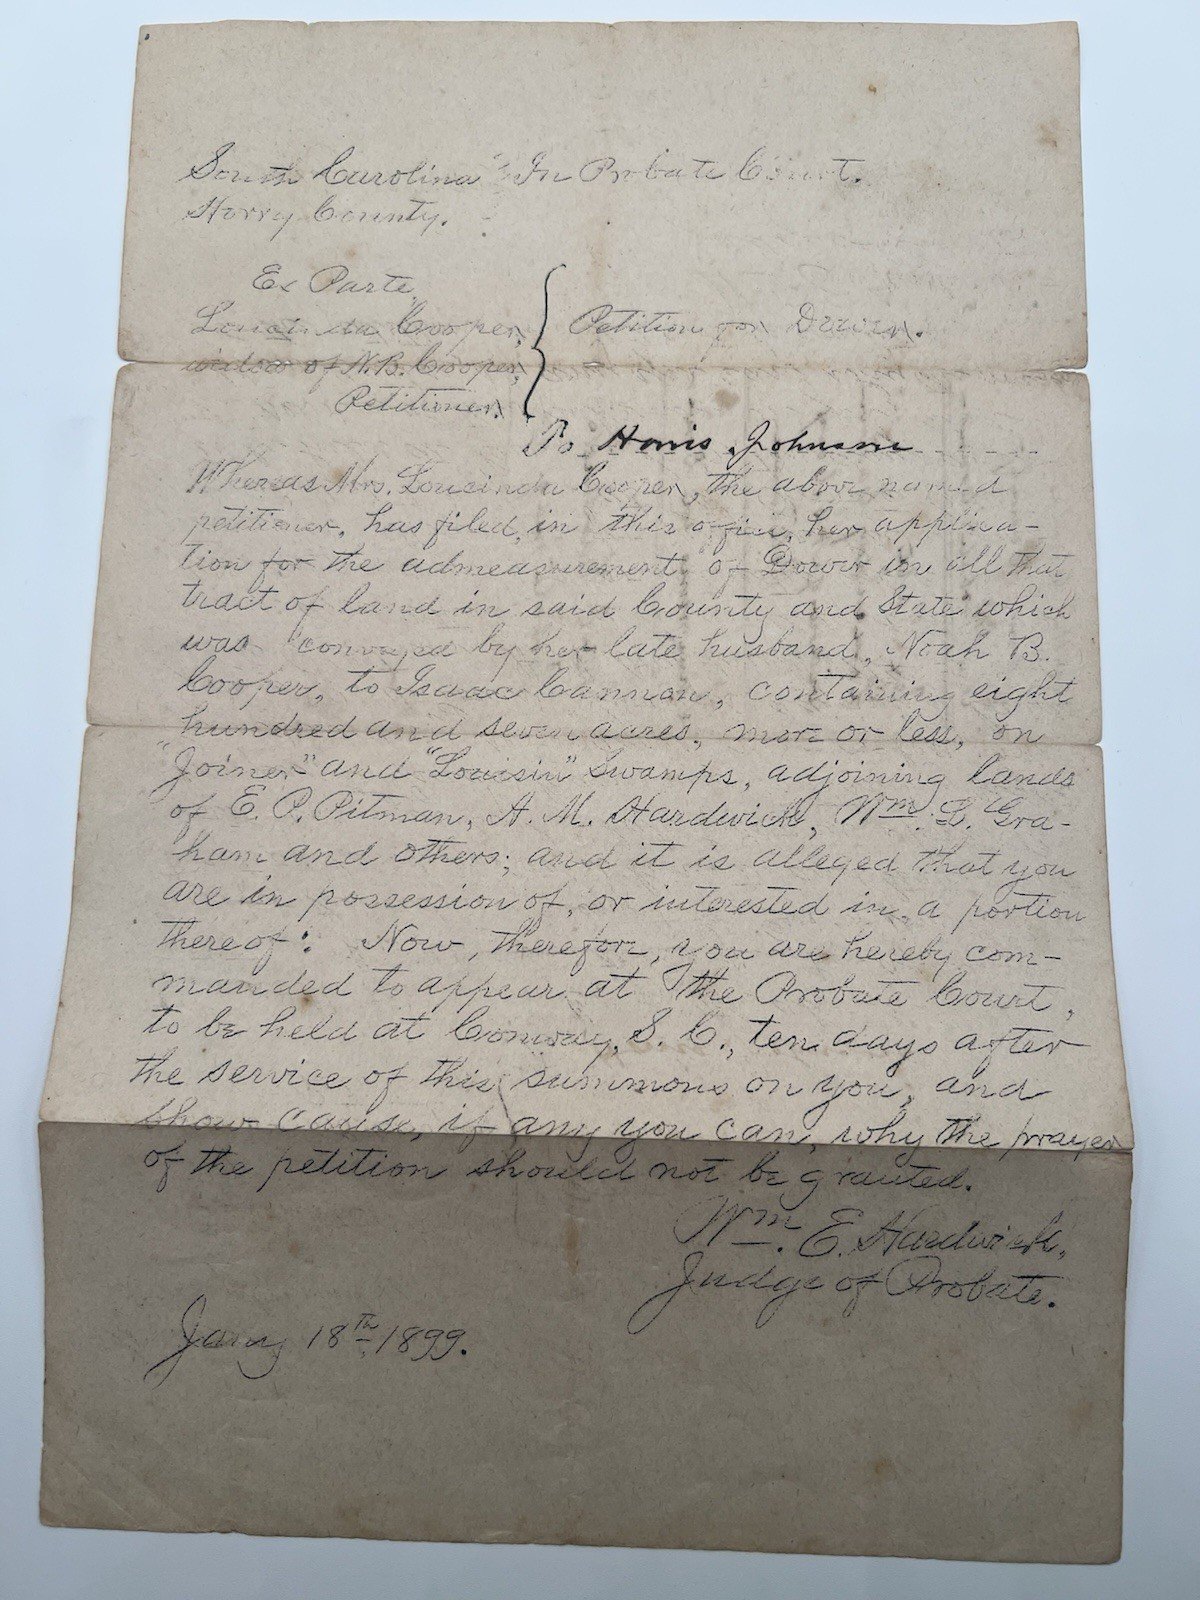 South Carolina } In Probate Court.
Horry County.
Ex Parte
Loucinda Cooper,
widow of N. B. Cooper,
Petitioner.
} Petition for Dower.
To Harris Johnson
Whereas Mrs. Loucinda Cooper, the above named
petitioner, has filed in this office, her applica-
tion for the admeasurement of Dower in all that
tract of land in said County and State which
was conveyed by her late husband, Noah B.
Cooper, to Isaac Cannon, containing eight
hundred and seven acres, more or less, on
"Joiner" and "Louisin" Swamps, adjoining lands
of E. P. Pitman, A. M. Hardwick, Wm. L. Gra-
ham and others; and it is alleged that you
are in possession of, or interested in, a portion
thereof: Now, therefore, you are hereby com-
manded to appear at the Probate Court,
to be held at Conway, S. C., ten days after
the service of this summons on you, and
show cause, if any you can, why the prayer
of the petition should not be granted.
Wm. E. Hardwick,
Judge of Probate.
Jany 18th 1899.